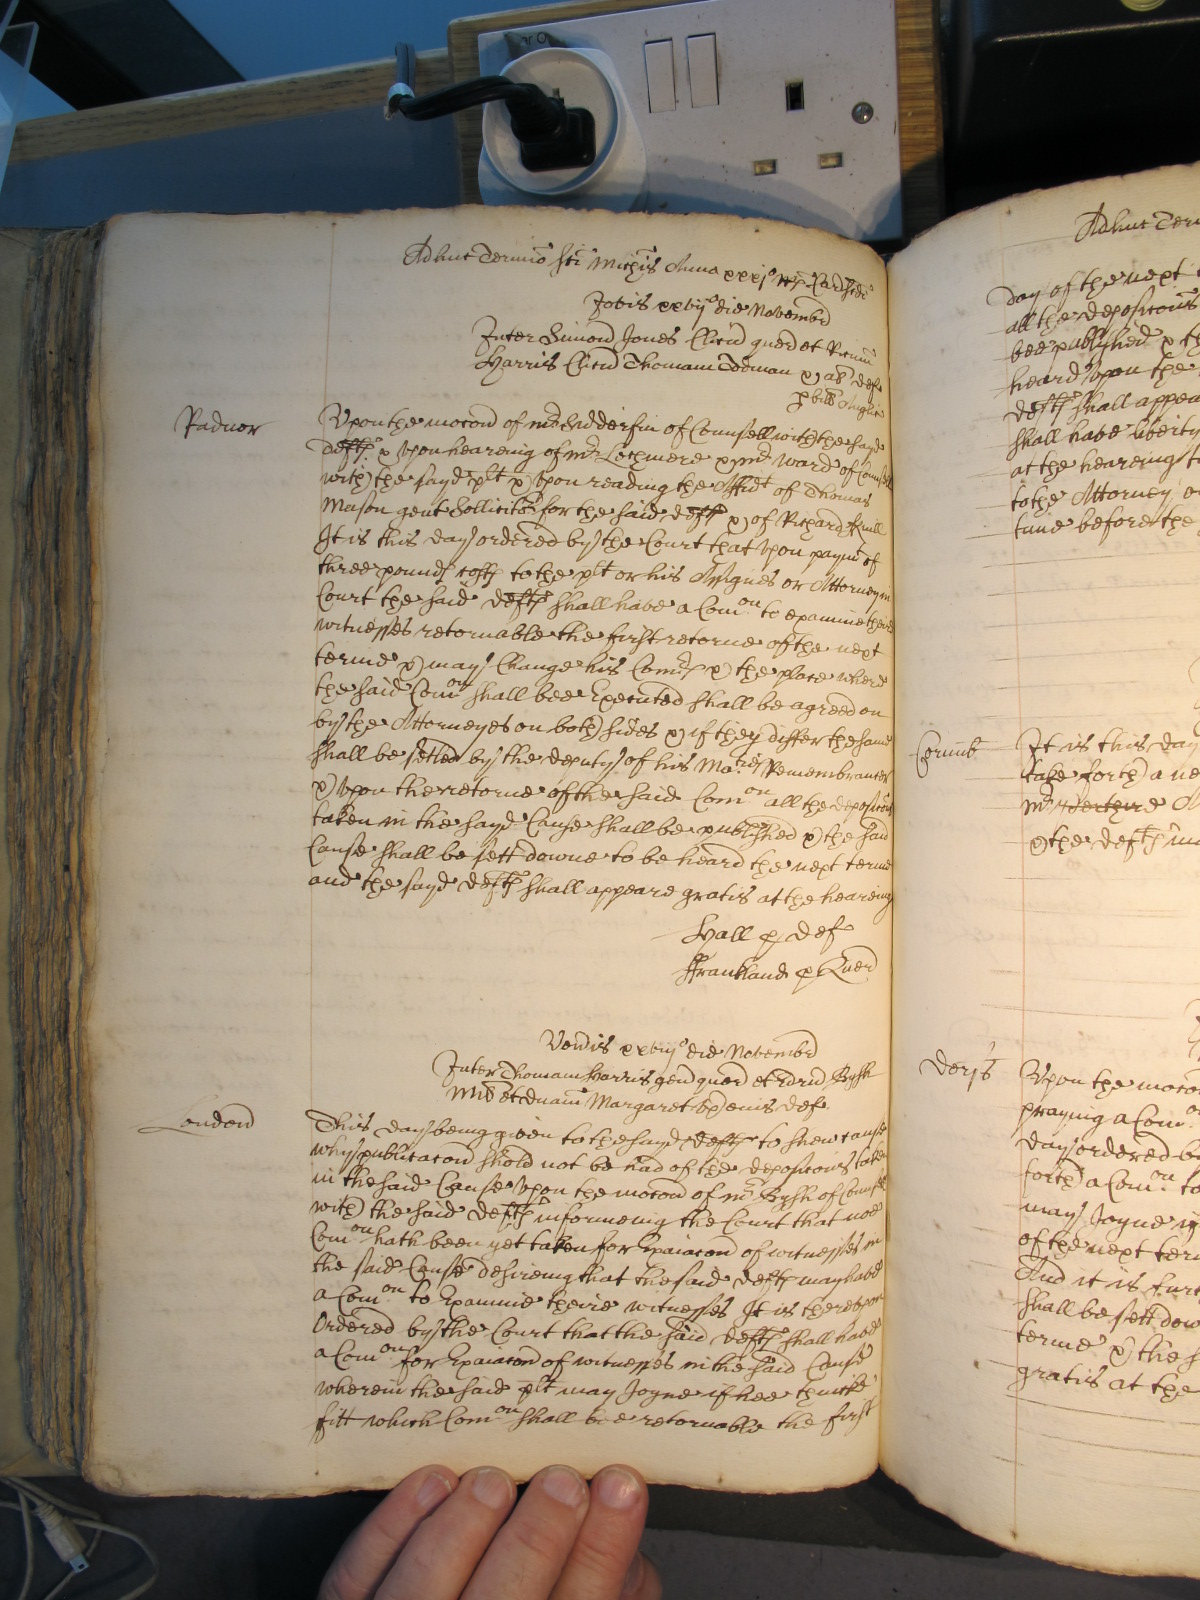 Adhuc Termino Sci Michis Anno xxxj° Rs Car Scdi
Jovis xxvij° die Novembr
Inter Simond Jones Clicu quer et
Harris Clicu Thomam Tedman & al def
p bill Anglic
Radnor
Upon the mocond of mr of Counsell with the sayd
defts & upon heareing of mr Lechmere & mr Ward of Counsell
with the sayd plt & upon reading the Affidt of Thomas
Mason gent Sollicitor for the said defts & of Richard
It is this day ordered by the Court that upon paymt of
three pounds costs to the plt or his Assignes or Attorney in
Court the said defts shall have a Comon to examine their
witnesses retornable the first retorne of the next
terme & may Change his Comrs & the place where
the said Comon shall bee Executed shall be agreed on
by the Attorneyes on both sides & if they differ the same
shall be setled by the deputy of his Maties Remembrancer
& upon the retorne of the said Comon all the depositions
taken in the sayd Cause shall be published & the said
Cause shall be sett downe to be heard the next terme
and the sayd defts shall appeare gratis at the heareing
Hall p def
Frankland p Quer
Veneris xxviij° die Novembr
Inter Thomam Harris gen quer et Edrid Bysh
Mil et Margaret Ux eius def
London
This day being given to the sayd defts to shew cause
why publicacond shold not be had of the depositions taken
in the said Cause Upon the mocond of mr Bysh of Counsell
with the said defts informeing the Court that noe
Comon hath been yet taken for Exaiacond of witnesses in
the said Cause desireing that the said defts may have
a Comon to Examine theire witnesses It is thereupon
Ordered by the Court that the said defts shall have
a Comon for Exaiacond of witnesses in the said Cause
wherein the said plt may Joyne if hee thinke
fitt which Comon shall bee retornable the first
Adhuc Term
day of the next
all the depositions
bee published & th
heard Upon the
defts shall appea
shall have liberty
at the heareing to
to the Attorney or
time before the
It is this day
take forth a ne
mr
& the defts
Upon the mocon
praying a Comon
day ordered
forth a Comon to
may Joyne
of the next ter
And it is furt
shall be sett dow
terme & the s
gratis at the